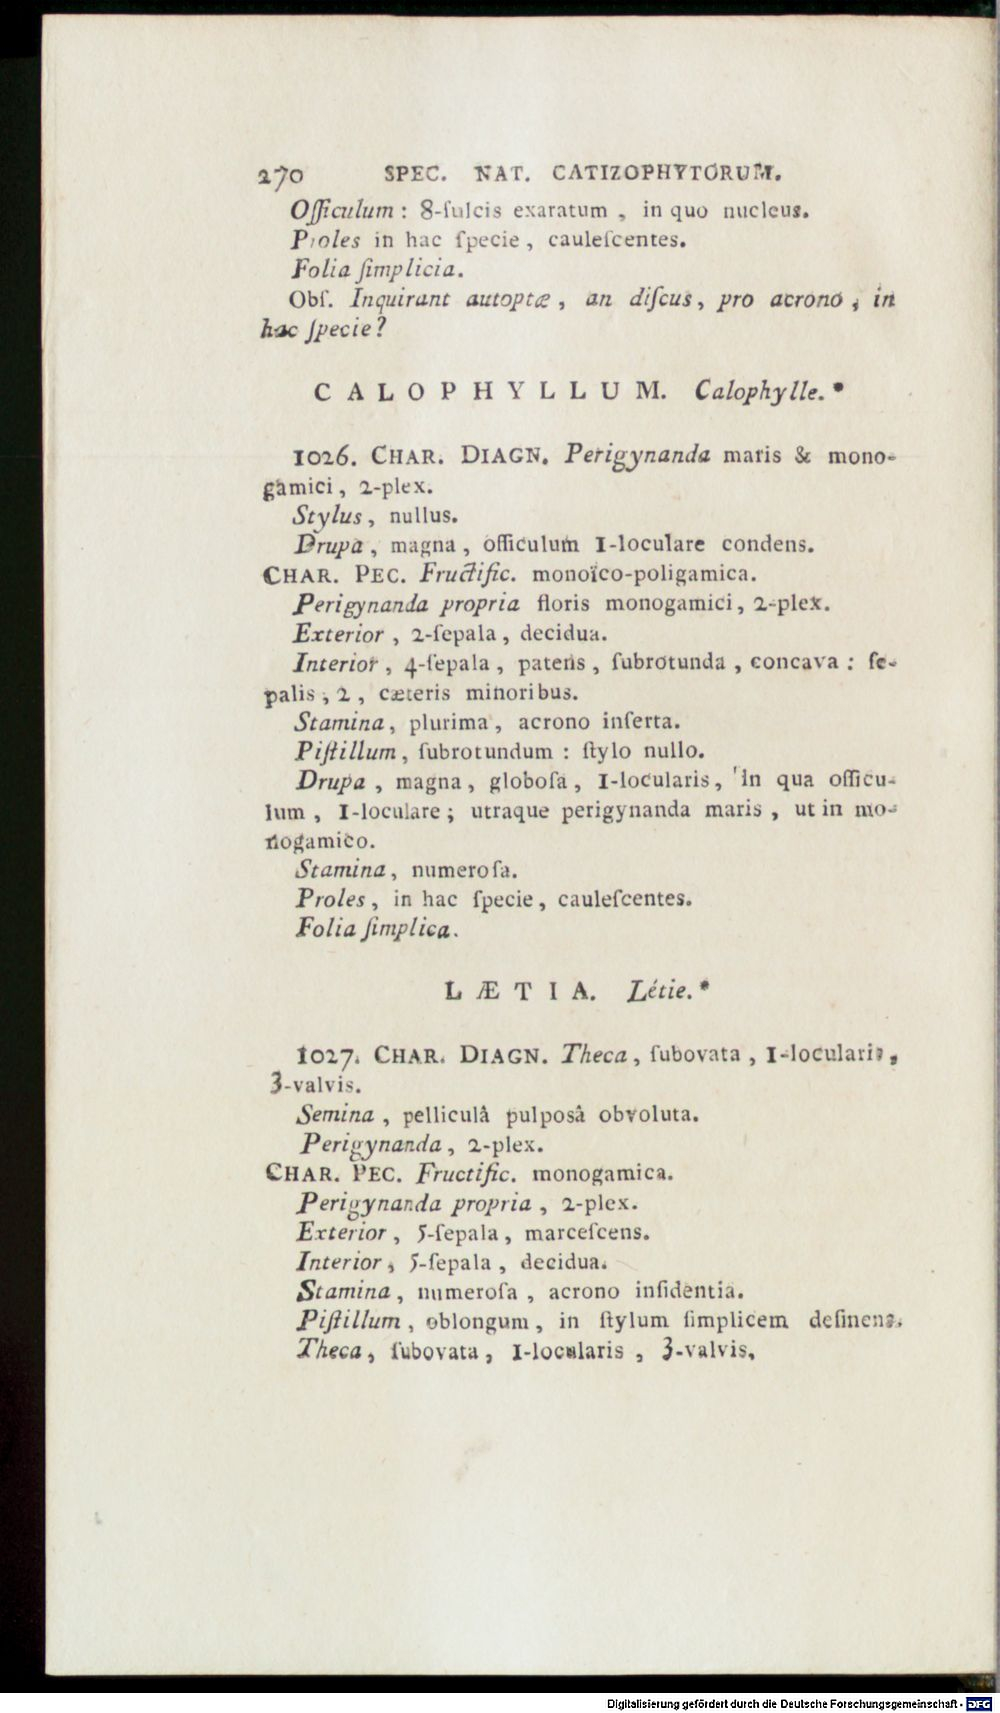 270 SPEC. NAT. CATIZOPHYTORUM.
Oſſiculum : 8-ſulcis exaratum , in quo nucleus.
Proles in hac ſpecie , cauleſcentes.
Folia ſimplicia.
Obſ. Inquirant autoptæ , an diſcus , pro acrono , in
hac ſpecie ?
CALOPHYLLUM. Calophylle.*
1026. CHAR. DIAGN. Perigynanda maris & mono-
gamici , 2-plex.
Stylus , nullus.
Drupa , magna , oſſiculum 1-loculare condens.
CHAR. PEC. Fructific. monoïco-poligamica.
Perigynanda propria floris monogamici , 2-plex.
Exterior , 2-ſepala , decidua.
Interior , 4-ſepala , patens , ſubrotunda , concava : ſe-
palis , 2 , cæteris minoribus.
Stamina , plurima , acrono inſerta.
Piſtillum , ſubrotundum : ſtylo nullo.
Drupa , magna , globoſa , 1-locularis , in qua oſſicu-
lum , 1-loculare ; utraque perigynanda maris , ut in mo-
nogamico.
Stamina , numeroſa.
Proles , in hac ſpecie , cauleſcentes.
Folia ſimplica.
LÆTIA. Létie.*
1027. CHAR. DIAGN. Theca , ſubovata , 1-locularis ,
3-valvis.
Semina , pelliculâ pulposâ obvoluta.
Perigynanda , 2-plex.
CHAR. PEC. Fructific. monogamica.
Perigynanda propria , 2-plex.
Exterior , 5-ſepala , marceſcens.
Interior , 5-ſepala , decidua.
Stamina , numeroſa , acrono inſidentia.
Piſtillum , oblongum , in ſtylum ſimplicem deſinens.
Theca , ſubovata , 1-locularis , 3-valvis.
Digitalisierung gefördert durch die Deutsche Forschungsgemeinschaft - DFG